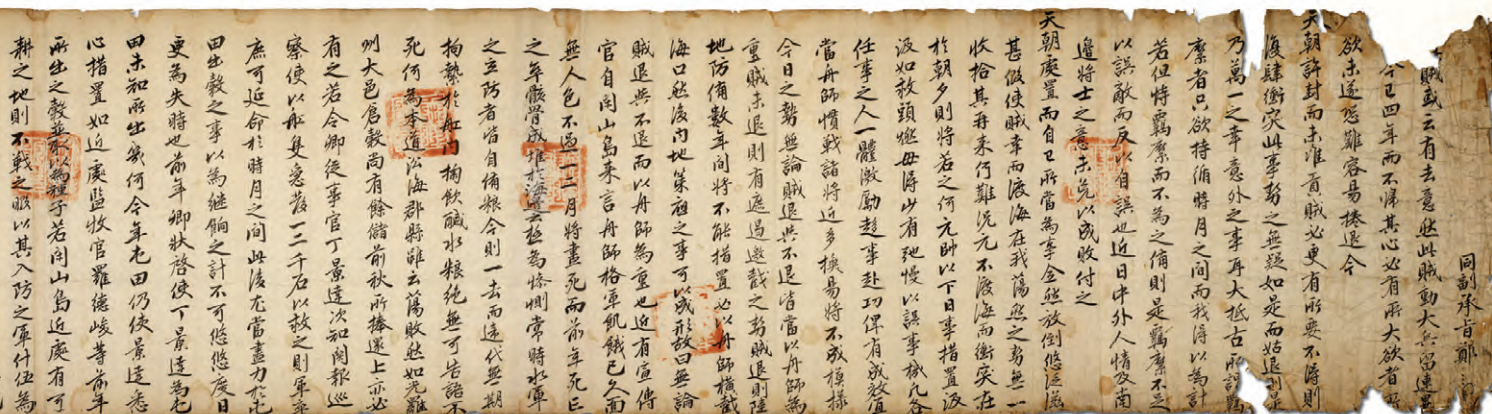 同副承旨鄭
賊或云有去意然此賊動大兵留連累
今已四年而不歸其心必有所大欲者
欲未遂恐難容易捲退今
天朝許封而未准貢賊必更有所要不得則
復肆衝突此事勢之無疑如是而姑退則是
乃萬一之幸意外之事耳大抵古所謂羈
縻者只欲持循時月之間而我得以為計
若但恃羈縻而不為之備則是羈縻不足
以誤敵而反以自誤也近日中外人情及南
邊將士之意未免以成敗付之
天朝處置而自己所當為事全然放倒悠泛滋
甚假使賊幸而渡海在我蕩然之勢無一
收拾其再來何難況元不渡海而衝突在
於朝夕則將若之何元帥以下日事措置汲
汲如救頭燃毋得少有弛慢以誤事機凡各
任事之人一體激勵趨事赴功俾有成效且
當舟師慣戰諸將近多換易將不成模樣
今日之勢無論賊退與不退皆當以舟師為
重賊未退則有遮遏邀截之勢賊退則陸
地防備數年間將不能措置必以舟師橫截
海口然後內地策應之事可以成形故曰無論
賊退與不退而以舟師為重也近有宣傳
官自閑山島來言舟師格軍飢餓已久面
無人色不過一二月將盡死而前年死亡
之卒骸骨成堆於海邊云極為慘惻常時水軍
之立防者皆自備粮今則一去而遠代無期
拘縶於船內掬飲鹹水粮絕無可告語不
死何為本道沿海郡縣雖云蕩敗然如光羅
州大邑倉穀尚有餘儲前秋所捧還上亦必
有之若令卿從事官丁景達次知關報巡
察使以船隻急發一二千石以救之則軍卒
庶可延命於時月之間此後尤當盡力於屯
田出穀之事以為繼餉之計不可悠悠度日
更為失時也前年卿狀啓使丁景達為屯
田未知所出幾何今年屯田仍使景達悉
心措置如近處監牧官羅德峻等前年
所出之穀並取以為種子若閑山島近處有可
耕之地則不戰之暇以其入防之軍什伍為